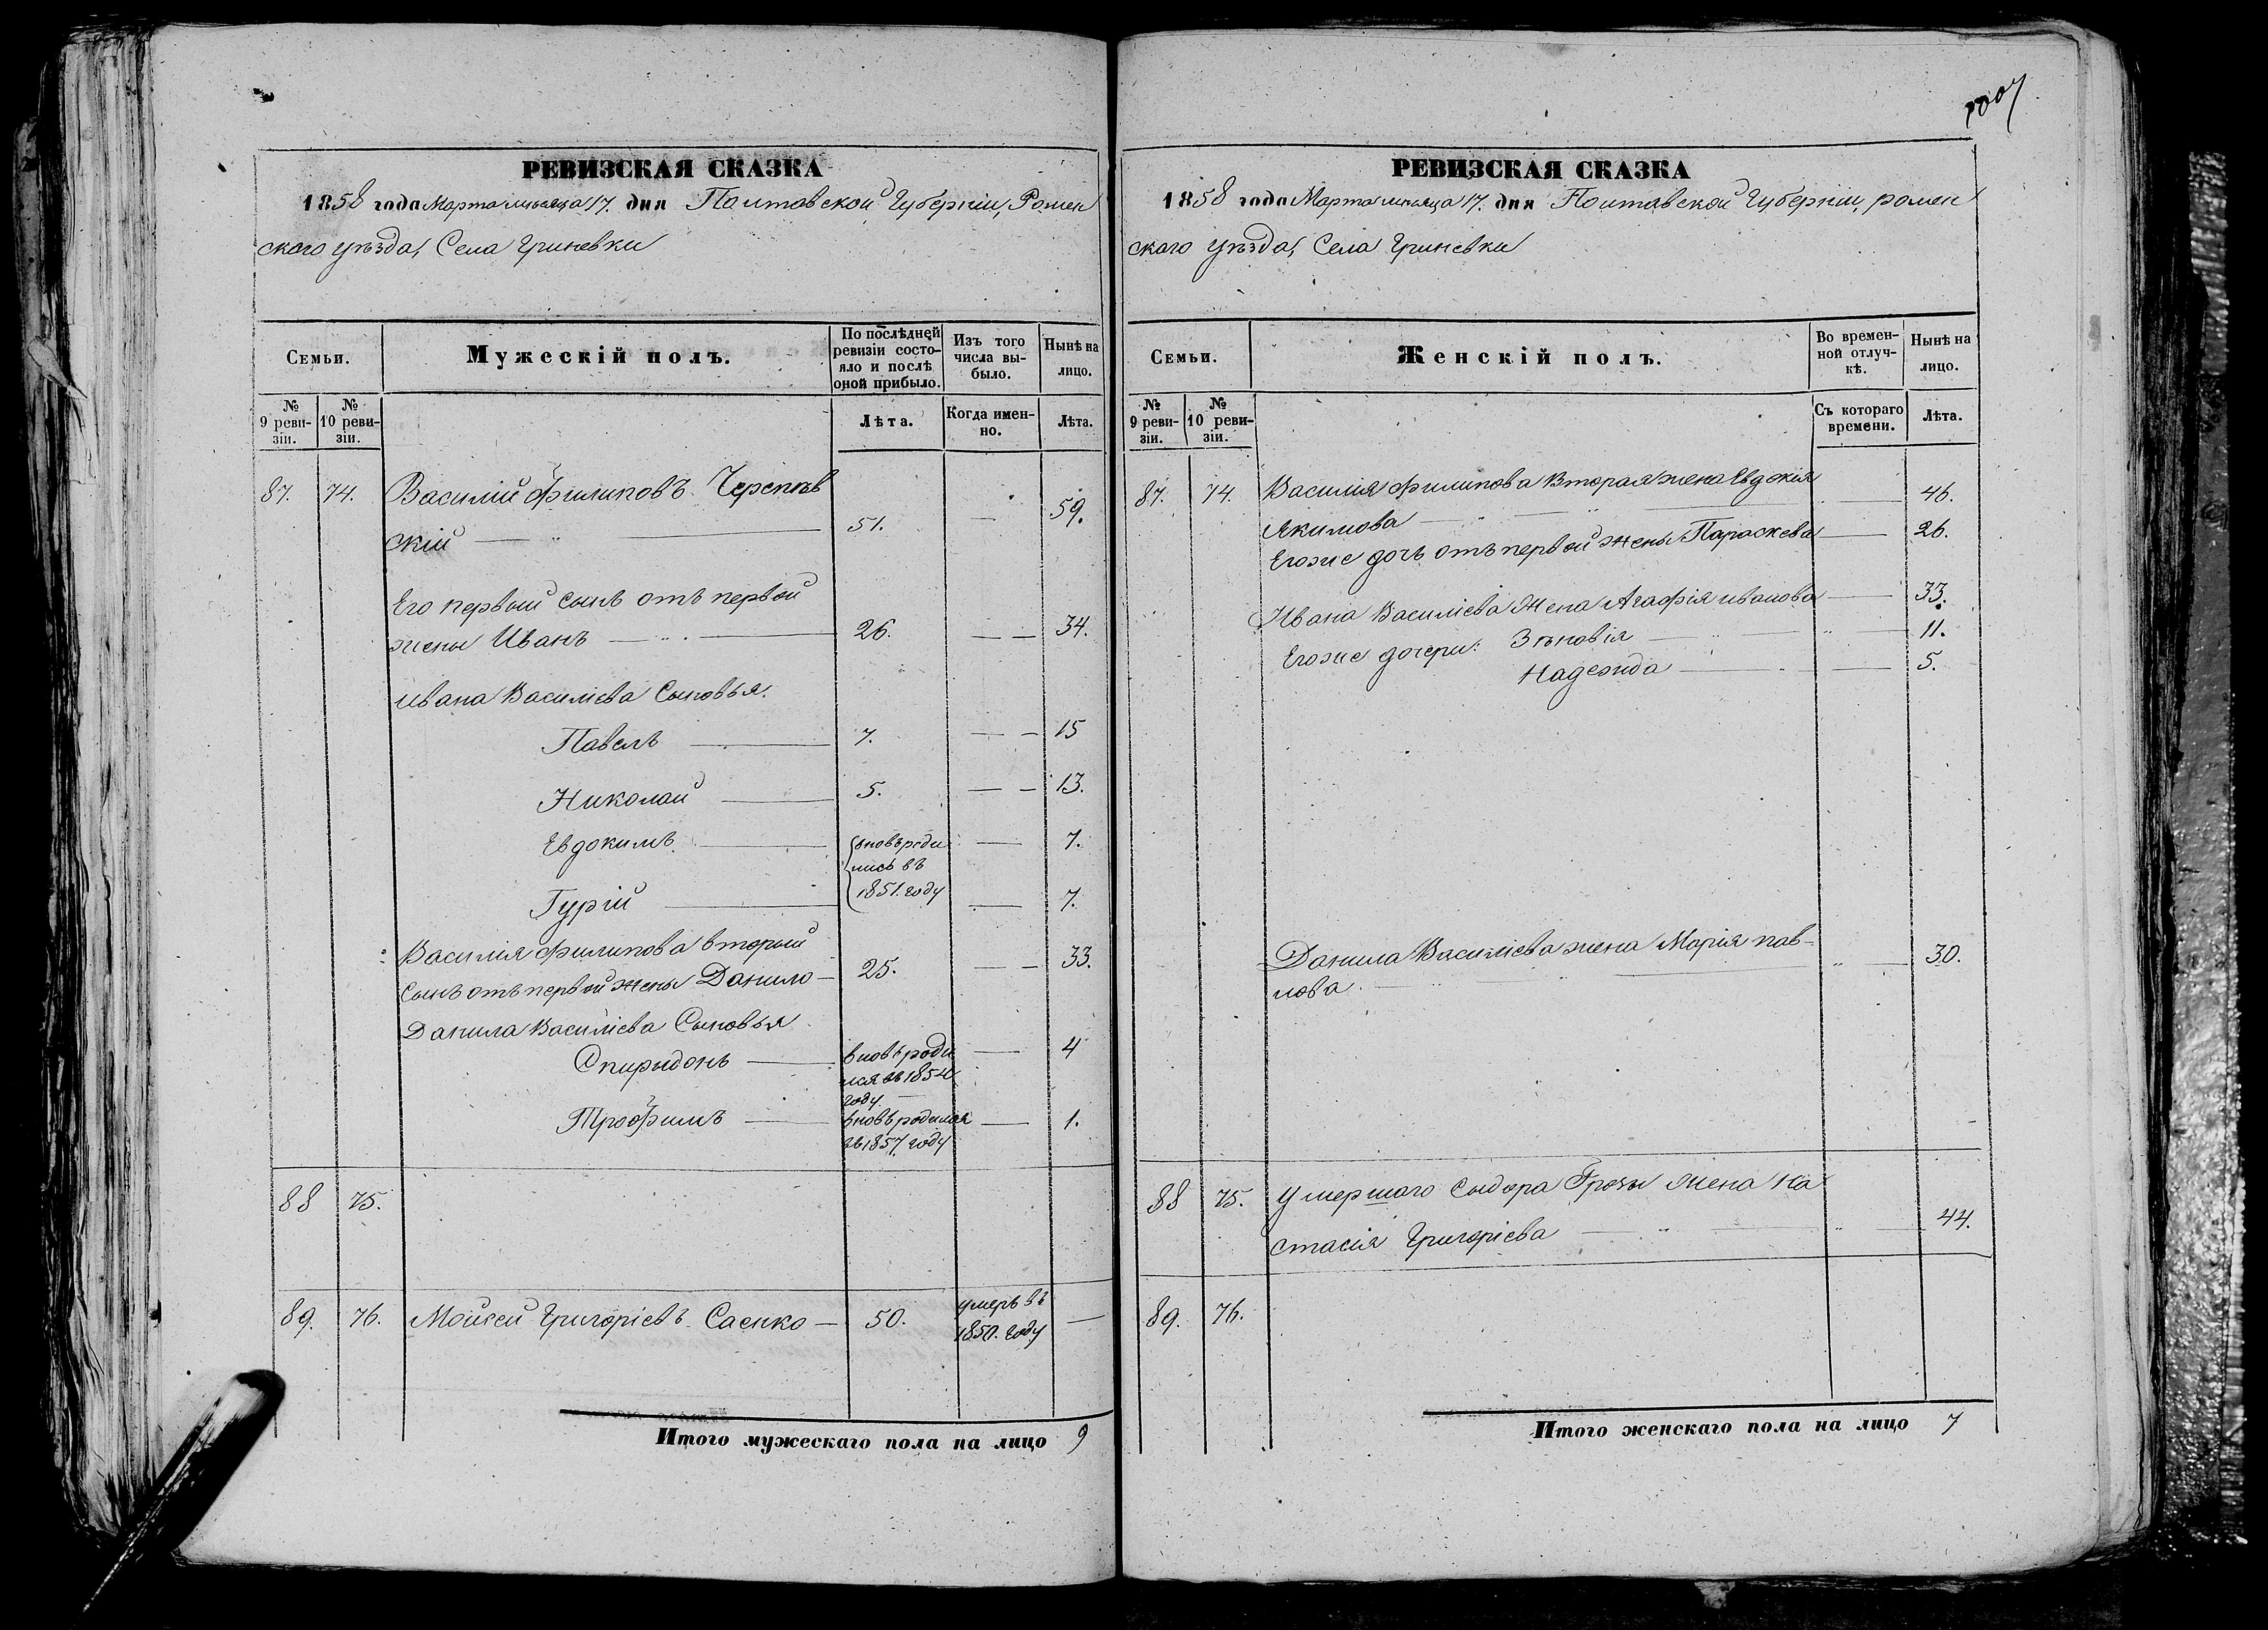 РЕВИЗСКАЯ СКАЗКА
1858 года Марта мѣсяца 17. дня Полтавской Губерніи, Ромен
скаго уѣзда, Села Гриневки
Семьи.
Мужескій полъ.
По послѣдней ревизіи состояло и послѣ оной прибыло.
Изъ того числа выбыло.
Нынѣ на лицо.
№ 9 ревизіи.
№ 10 ревизіи.
Лѣта.
Когда именно.
Лѣта.
87. 74. Василій Филиповъ Черепов
скій — 51. — 59.
Его первый сынъ отъ первой
жены Иванъ — 26. — 34.
Ивана Василіева Сыновья.
Павелъ — 7. — 15
Николай — 5. — 13.
Евдокимъ — — 7.
вновь роди
лись въ
1851. году
Гурій — — 7.
Василія Филипова вторый
сынъ отъ первой жены Данило — 25. — 33.
Данила Василіева Сыновья
Спиридонъ — вновь роди — 4
лся въ 1854
году.
Трофимъ — вновь родился — 1.
въ 1857 году
88 75.
89. 76. Мойсей Григоріевъ Саенко — 50. умеръ въ —
1850. году
Итого мужескаго пола на лицо 9
1007
РЕВИЗСКАЯ СКАЗКА
1858 года Марта мѣсяца 17. дня Полтавской Губерніи, ромен
скаго уѣзда, Села Гриневки
Семьи.
Женскій полъ.
Во временной отлучкѣ.
Нынѣ на лицо.
№ 9 ревизіи.
№ 10 ревизіи.
Съ котораго времени.
Лѣта.
87. 74. Василія Филипова вторая жена Евдокія — 46.
Якимова —
Егоже дочь отъ первой жены Параскева — 26.
Ивана Василіева Жена Агафія иванова — 33.
Егоже дочери: Зѣновія — 11.
Надежда — 5.
Данила Василіева жена Марія пав-
лова. — 30.
88 75. Умершаго Сыдора Грозы жена На
стасія Григоріева — 44.
89. 76.
Итого женскаго пола на лицо 7